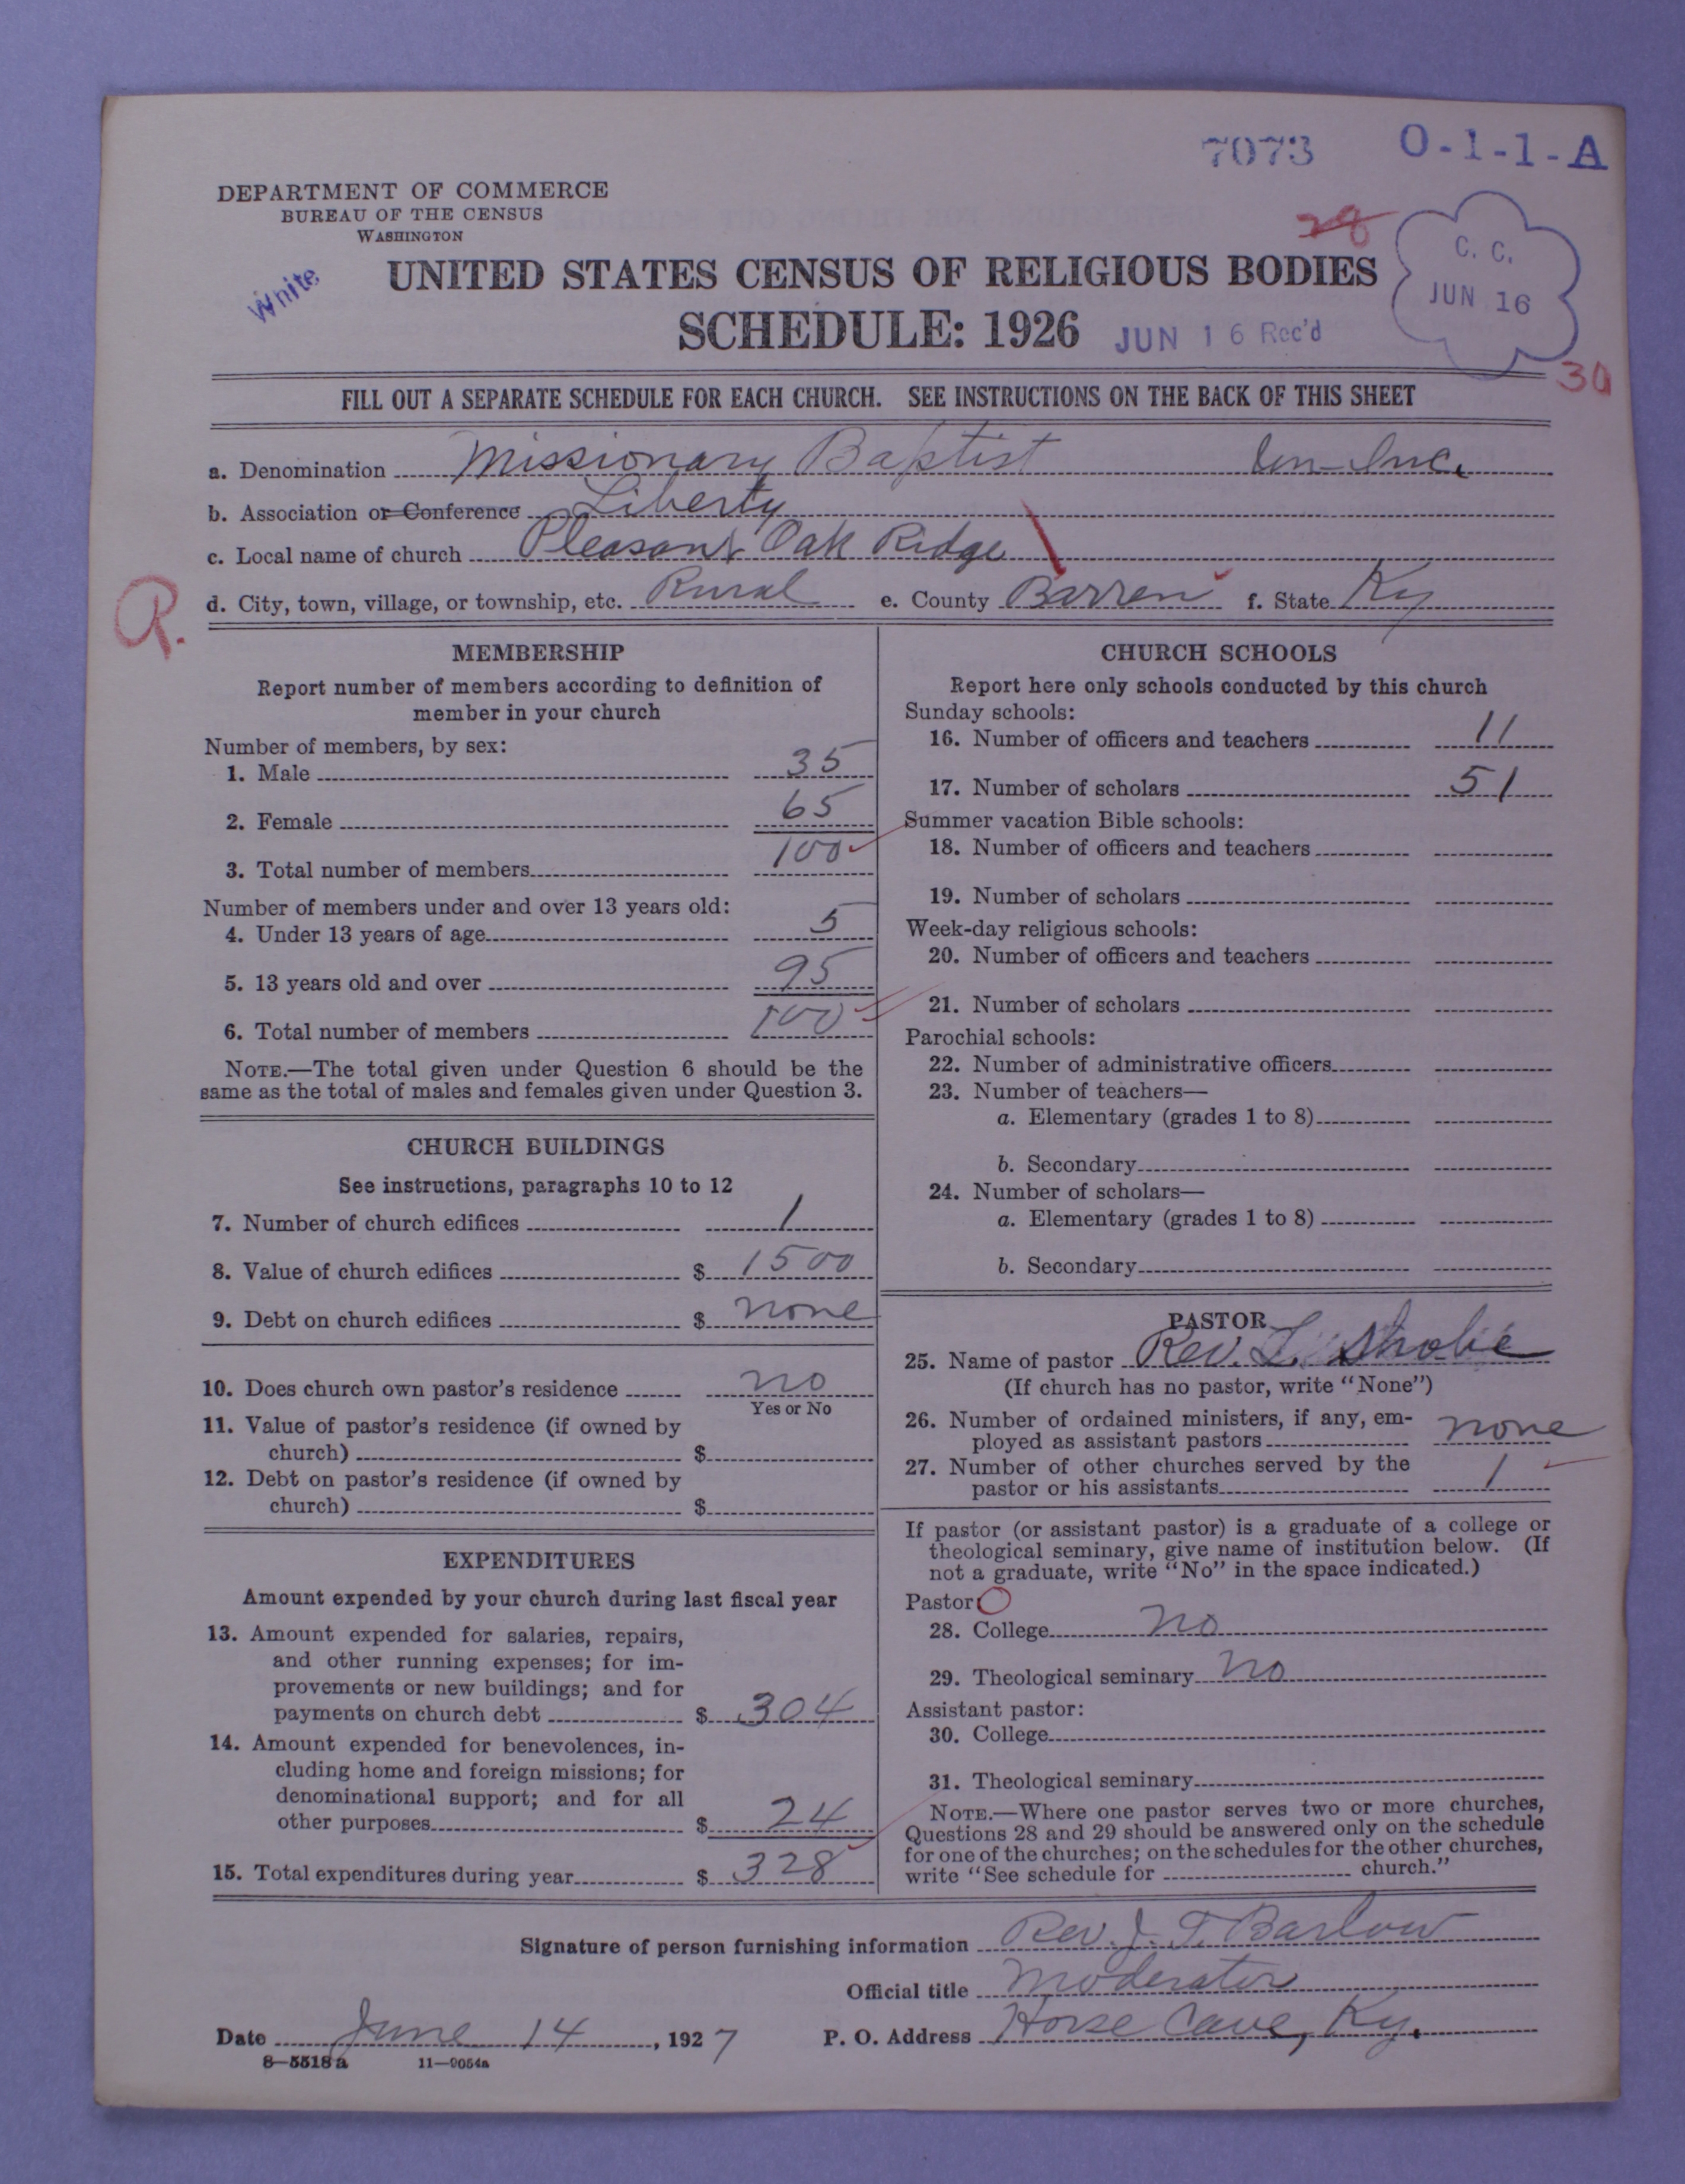 7073 O-1-1-A
DEPARTMENT OF COMMERCE
BUREAU OF THE CENSUS
WASHINGTON
28
C. C.
JUN 16
White
UNITED STATES CENSUS OF RELIGIOUS BODIES
SCHEDULE: 1926 JUN 16 Rec'd
30
FILL OUT A SEPARATE SCHEDULE FOR EACH CHURCH. SEE INSTRUCTIONS ON THE BACK OF THIS SHEET
a. Denomination Missionary Baptist Un-Inc.
b. Association or Conference Liberty
c. Local name of church Pleasant Oak Ridge
R. d. City, town, village, or township, etc. Rural e. County Barren f. State Ky
MEMBERSHIP
Report number of members according to definition of
member in your church
Number of members, by sex:
1. Male 35
2. Female 65
3. Total number of members 100
Number of members under and over 13 years old:
4. Under 13 years of age 5
5. 13 years old and over 95
6. Total number of members 100
NOTE.—The total given under Question 6 should be the
same as the total of males and females given under Question 3.
CHURCH BUILDINGS
See instructions, paragraphs 10 to 12
7. Number of church edifices 1
8. Value of church edifices $ 1500
9. Debt on church edifices $ none
10. Does church own pastor's residence no
Yes or No
11. Value of pastor's residence (if owned by
church) $
12. Debt on pastor's residence (if owned by
church) $
EXPENDITURES
Amount expended by your church during last fiscal year
13. Amount expended for salaries, repairs,
and other running expenses; for im-
provements or new buildings; and for
payments on church debt $ 304
14. Amount expended for benevolences, in-
cluding home and foreign missions; for
denominational support; and for all
other purposes $ 24
15. Total expenditures during year $ 328
CHURCH SCHOOLS
Report here only schools conducted by this church
Sunday schools:
16. Number of officers and teachers 11
17. Number of scholars 51
Summer vacation Bible schools:
18. Number of officers and teachers
19. Number of scholars
Week-day religious schools:
20. Number of officers and teachers
21. Number of scholars
Parochial schools:
22. Number of administrative officers
23. Number of teachers—
a. Elementary (grades 1 to 8)
b. Secondary
24. Number of scholars—
a. Elementary (grades 1 to 8)
b. Secondary
PASTOR
25. Name of pastor Rev. L.
(If church has no pastor, write "None")
26. Number of ordained ministers, if any, em-
ployed as assistant pastors none
27. Number of other churches served by the
pastor or his assistants 1
If pastor (or assistant pastor) is a graduate of a college or
theological seminary, give name of institution below. (If
not a graduate, write "No" in the space indicated.)
Pastor: O
28. College no
29. Theological seminary no
Assistant pastor:
30. College
31. Theological seminary
NOTE.—Where one pastor serves two or more churches,
Questions 28 and 29 should be answered only on the schedule
for one of the churches; on the schedules for the other churches,
write "See schedule for church."
Signature of person furnishing information Rev. J. T. Barlow
Official title Moderator
Date June 14, 1927 P. O. Address Horse Cave, Ky.
8—5518 a 11—9054a